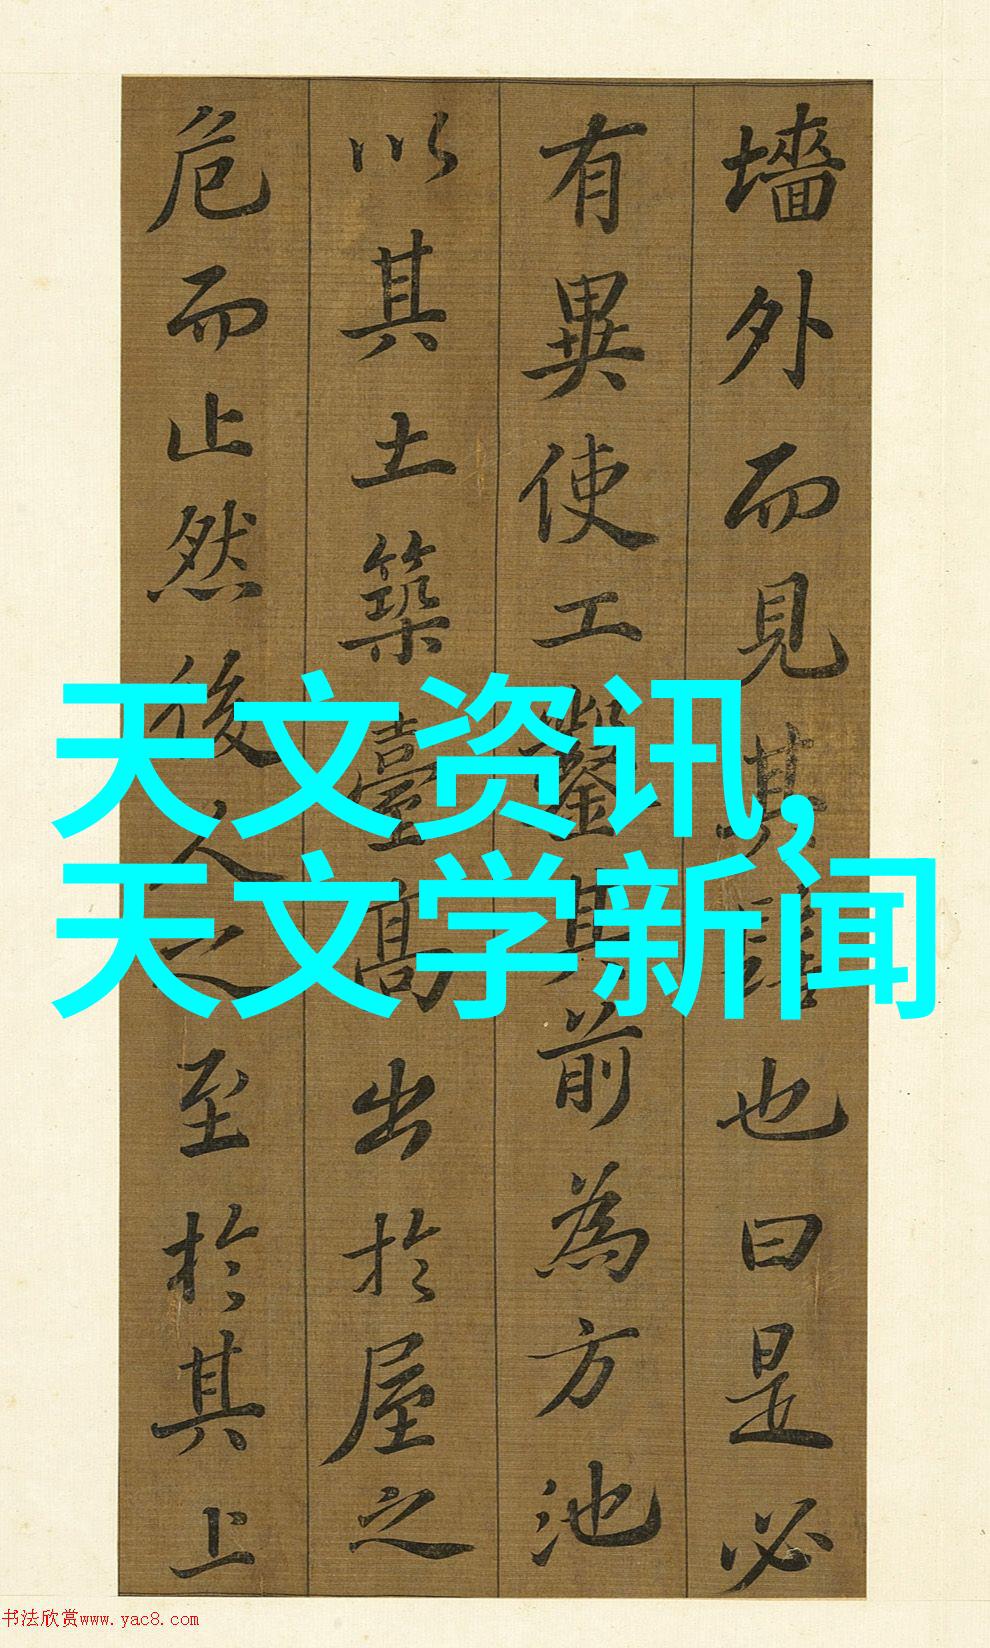 墻外而見其髻也曰是必
有異使工鑿其前為方池
以其土築臺高出於屋之
危而止然後人之至於其上
天文资讯,
天文学新闻
书法欣赏www.yac8.com